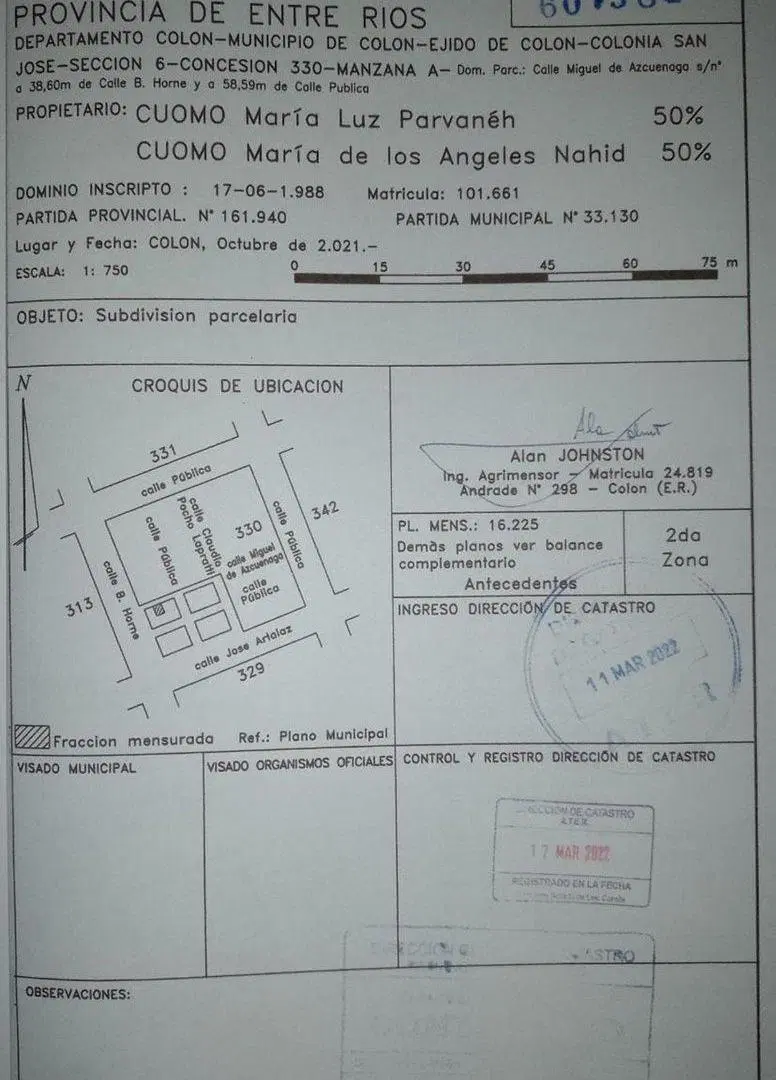 PROVINCIA DE ENTRE RIOS
DEPARTAMENTO COLON-MUNICIPIO DE COLON-EJIDO DE COLON-COLONIA SAN
JOSE-SECCION 6-CONCESION 330-MANZANA A- Dom. Parc.: Calle Miguel de Azcuenaga s/n°
a 38,60m de Calle B. Horne y a 58,59m de Calle Publica
PROPIETARIO: CUOMO María Luz Parvanéh 50%
CUOMO María de los Angeles Nahid 50%
DOMINIO INSCRIPTO : 17-06-1.988 Matricula: 101.661
PARTIDA PROVINCIAL. N° 161.940 PARTIDA MUNICIPAL N° 33.130
Lugar y Fecha: COLON, Octubre de 2.021.-
ESCALA: 1: 750
0 15 30 45 60 75 m
OBJETO: Subdivision parcelaria
N
CROQUIS DE UBICACION
331
calle Pública
342
calle Pública
calle Claudio
Pocho Lapratti
330
calle Miguel
de Azcuenaga
calle Pública
calle
Pública
313
calle B. Horne
calle Jose Artalaz
329
Fraccion mensurada Ref.: Plano Municipal
Alan JOHNSTON
Ing. Agrimensor - Matricula 24.819
Andrade N° 298 - Colon (E.R.)
PL. MENS.: 16.225
Demàs planos ver balance
complementario
Antecedentes
2da
Zona
INGRESO DIRECCIÓN DE CATASTRO
11 MAR 2022
VISADO MUNICIPAL
VISADO ORGANISMOS OFICIALES
CONTROL Y REGISTRO DIRECCIÓN DE CATASTRO
DIRECCION DE CATASTRO
A.T.E.R.
17 MAR 2022
REGISTRADO EN LA FECHA
OBSERVACIONES: